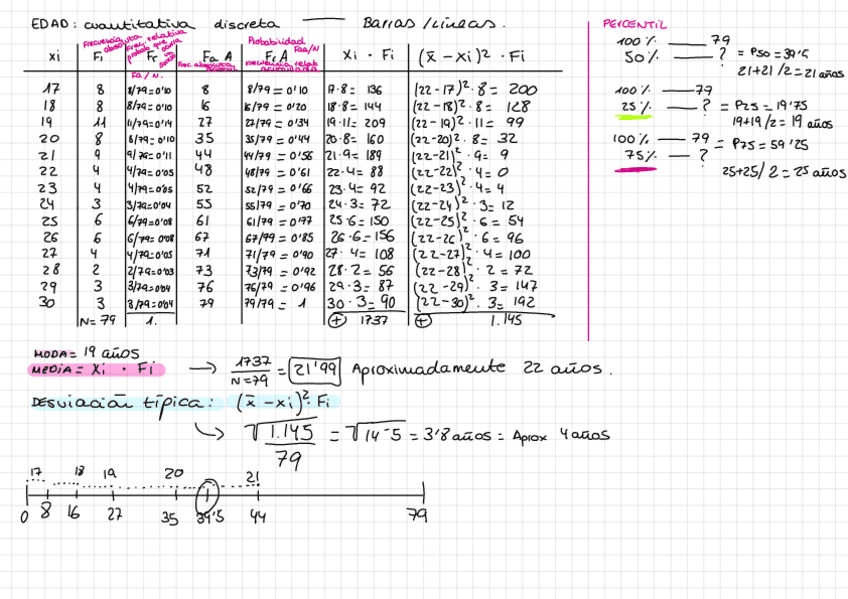 EDAD: cuantitativa discreta — Barras/lineas.
xi Fi Fr Fa A Fr A Xi · Fi (x̄ - xi)² · Fi
Frecuencia absoluta
Frec. relativa
Fa/N.
Frec. absoluta
Probabilidad
Faa/N
Frecuencia relat acumulada
17 8 8/79=0'10 8 8/79=0'10 17·8= 136 (22-17)²·8= 200
18 8 8/79=0'10 16 16/79=0'20 18·8= 144 (22-18)²·8= 128
19 11 11/79=0'14 27 27/79=0'34 19·11= 209 (22-19)²·11= 99
20 8 8/79=0'10 35 35/79=0'44 20·8= 160 (22-20)²·8= 32
21 9 9/79=0'11 44 44/79=0'56 21·9= 189 (22-21)²·9= 9
22 4 4/79=0'05 48 48/79=0'61 22·4= 88 (22-22)²·4= 0
23 4 4/79=0'05 52 52/79=0'66 23·4= 92 (22-23)²·4= 4
24 3 3/79=0'04 55 55/79=0'70 24·3= 72 (22-24)²·3= 12
25 6 6/79=0'08 61 61/79=0'77 25·6= 150 (22-25)²·6= 54
26 6 6/79=0'08 67 67/79=0'85 26·6= 156 (22-26)²·6= 96
27 4 4/79=0'05 71 71/79=0'90 27·4= 108 (22-27)²·4= 100
28 2 2/79=0'03 73 73/79=0'92 28·2= 56 (22-28)²·2= 72
29 3 3/79=0'04 76 76/79=0'96 29·3= 87 (22-29)²·3= 147
30 3 3/79=0'04 79 79/79= 1 30·3= 90 (22-30)²·3= 192
N=79 1. + 1737 + 1.145
PERCENTIL
100% — 79
50% — ? = P50=39'5
21+21/2=21 años
100% — 79
25% — ? = P25=19'75
19+19/2= 19 años
100% — 79
75% — ? = P75=59'25
25+25/2=25 años
MODA= 19 años
MEDIA= Xi · Fi → 1737/N=79 = 21'99 Aproximadamente 22 años.
DESVIACIÓN TÍPICA: (x̄-xi)²·Fi
↳ √1.145/79 = √14-5 = 3'8 años = Aprox 4 años
17 18 19 20 21
0 8 16 27 35 39'5 44 79